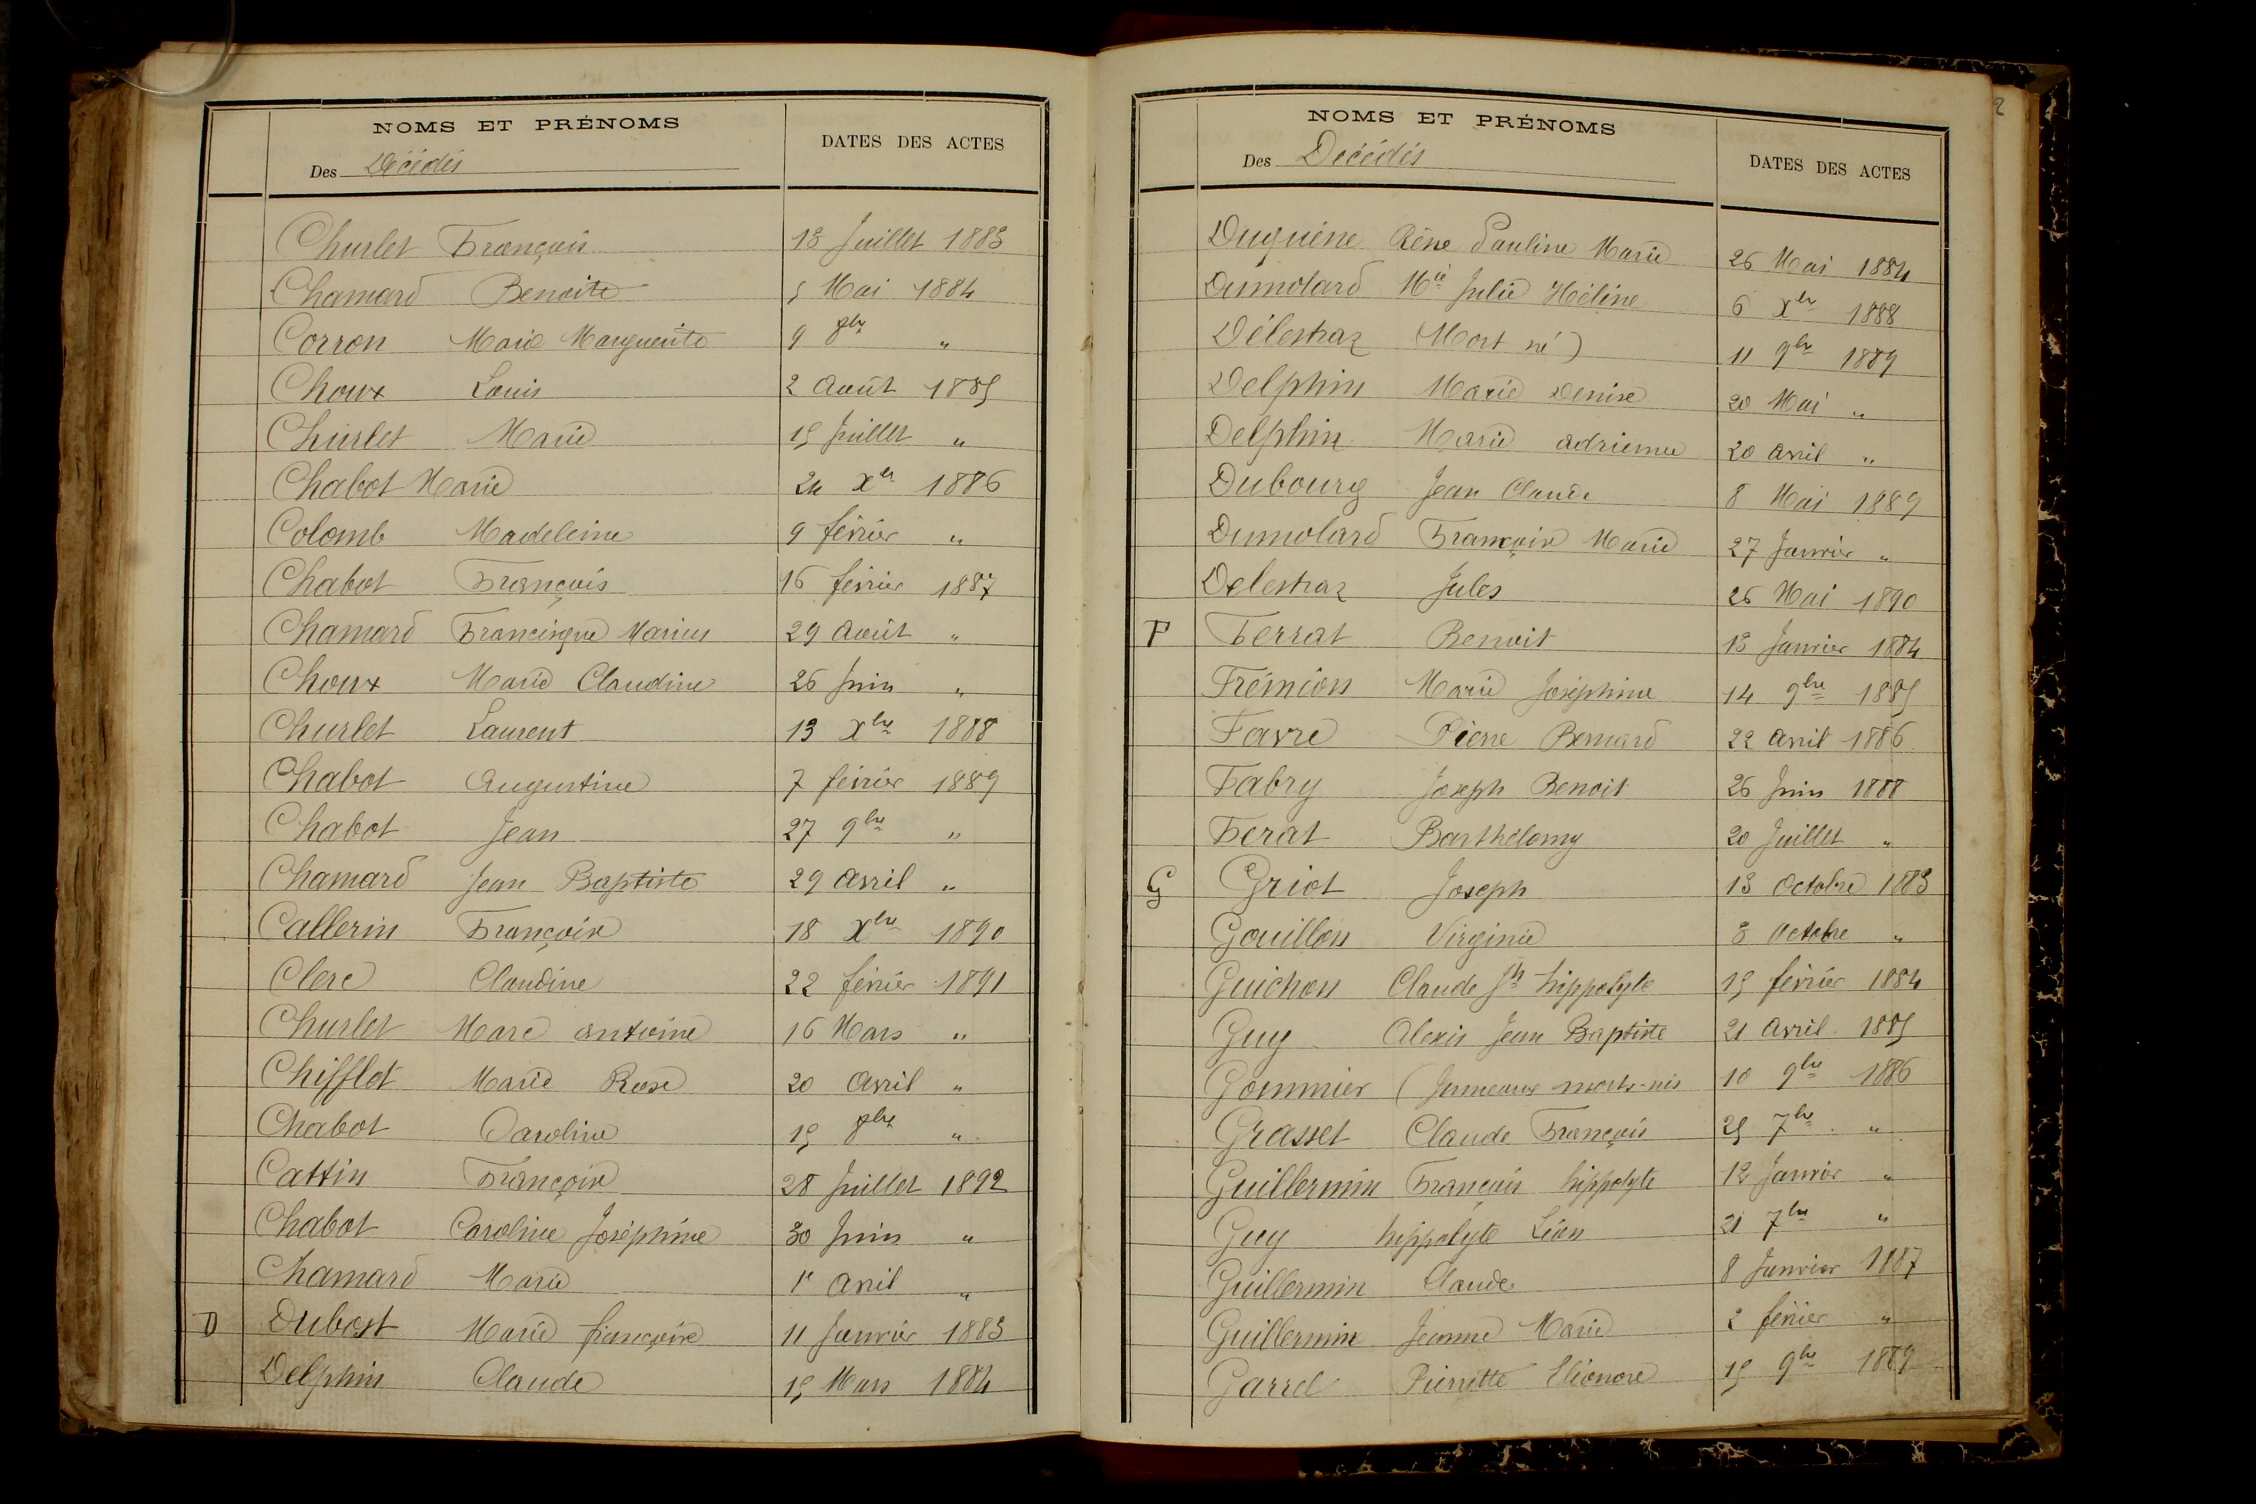 NOMS ET PRÉNOMS
DATES DES ACTES
Des Décédés
Churlet François 13 Juillet 1883
Chamard Benoite 5 Mai 1884
Corron Marie Marguerite 9 8bre "
Choux Louis 2 Août 1885
Churlet Marie 15 Juillet "
Chabot Marie 24 Xbr 1886
Colomb Madeleine 9 février "
Chabot François 16 février 1887
Chamard Francisque Marius 29 Août "
Choux Marie Claudine 26 Juin "
Churlet Laurent 13 Xbre 1888
Chabot Augustine 7 février 1889
Chabot Jean 27 9bre "
Chamard Jean Baptiste 29 Avril "
Callerin Françoise 18 Xbre 1890
Clerc Claudine 22 février 1891
Churlet Marc antoine 16 Mars "
Chifflot Marie Rose 20 Avril "
Chabot Caroline 15 8bre "
Cattin Françoise 28 Juillet 1892
Chabot Caroline Joséphine 30 Juin "
Chamard Marie 1er Avril "
D Dubost Marie françoise 11 Janvier 1883
Delphin Claude 15 Mars 1884
2
NOMS ET PRÉNOMS
DATES DES ACTES
Des Décédés
Duguéne Pauline Marie 26 Mai 1884
Dumolard Mie Julie Héléne 6 Xbr 1888
Délestraz (Mort né) 11 9br 1889
Delphin Marie Denise 20 Mai "
Delphin Marie adrienne 20 Avril "
Dubourg Jean Claude 8 Mai 1889
Dumolard Françoise Marie 27 Janvier "
Delestraz Jules 26 Mai 1890
F Ferrat Benoit 13 Janvier 1884
Frémion Marie Joséphine 14 9bre 1885
Favre Pierre Bernard 22 Avril 1886
Fabry Joseph Benoit 26 Juin 1888
Ferat Barthélomy 20 Juillet "
G Griot Joseph 13 Octobre 1883
Gouillon Virginie 3 Octobre "
Guichon Claude Jh hippolyte 15 février 1884
Guy Alexis Jean Baptiste 21 Avril 1885
Gommier (Jumeaux morts-nés 10 9bre 1886
Grasset Claude François 25 7bre "
Guillermin François hippolyte 12 Janvier "
Guy hippolyte Léon 21 7bre "
Guillermin Claude 8 Janvier 1887
Guillermin Jeanne Marie 2 février "
Garrel Pierrette Eléonore 15 9bre 1889